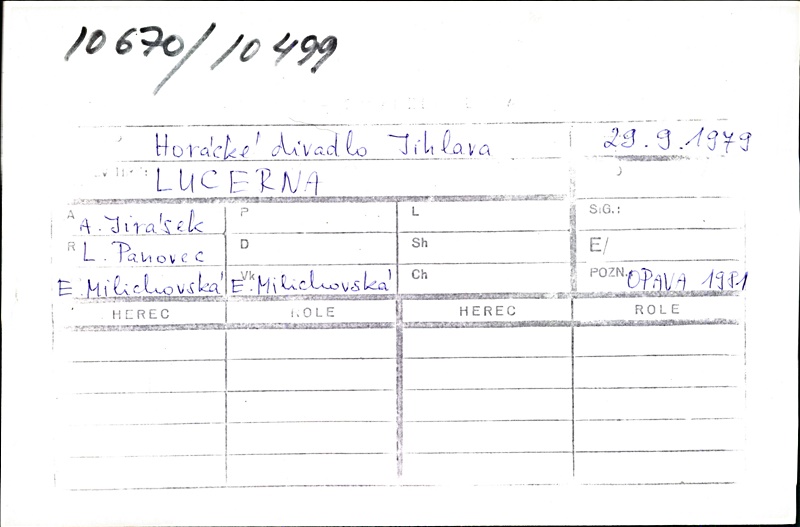 10 670/10 499
Horácké divadlo Jihlava 29.9.1979
LUCERNA
A A. Jirásek P L SIG.:
R L. Panovec D Sh E/
E. Milichovská Vk E. Milichovská Ch POZN. OPAVA 1981
HEREC ROLE HEREC ROLE